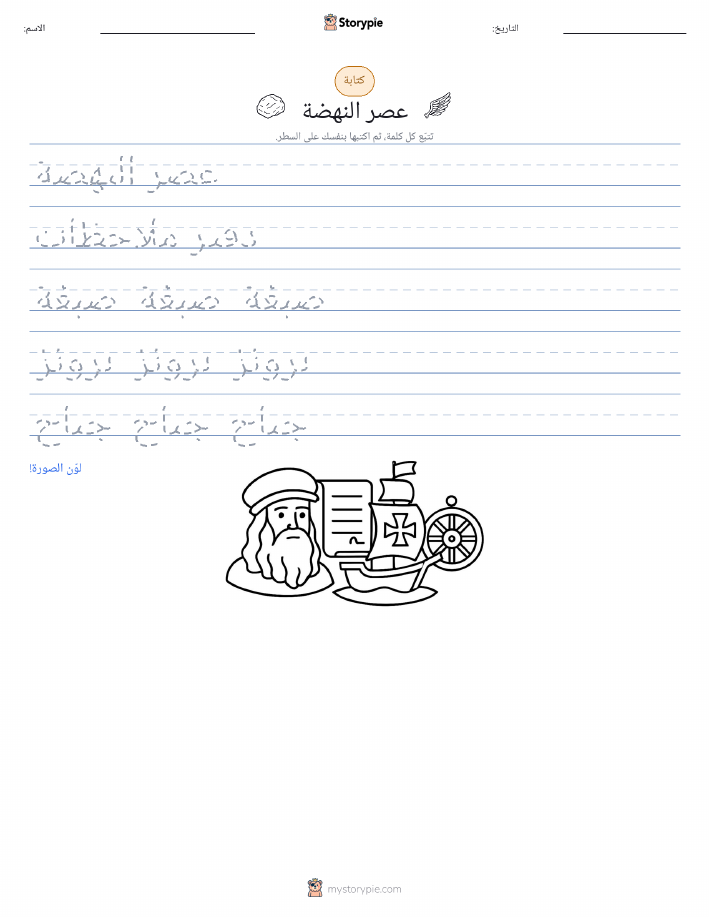 الاسم:
Storypie
التاريخ:
كتابة
عصر النهضة
تتبّع كل كلمة، ثم اكتبها بنفسك على السطر.
عصر النهضة
دفتر ملاحظات
صبغة صبغة صبغة
برونز برونز برونز
جناح جناح جناح
لوّن الصورة!
mystorypie.com